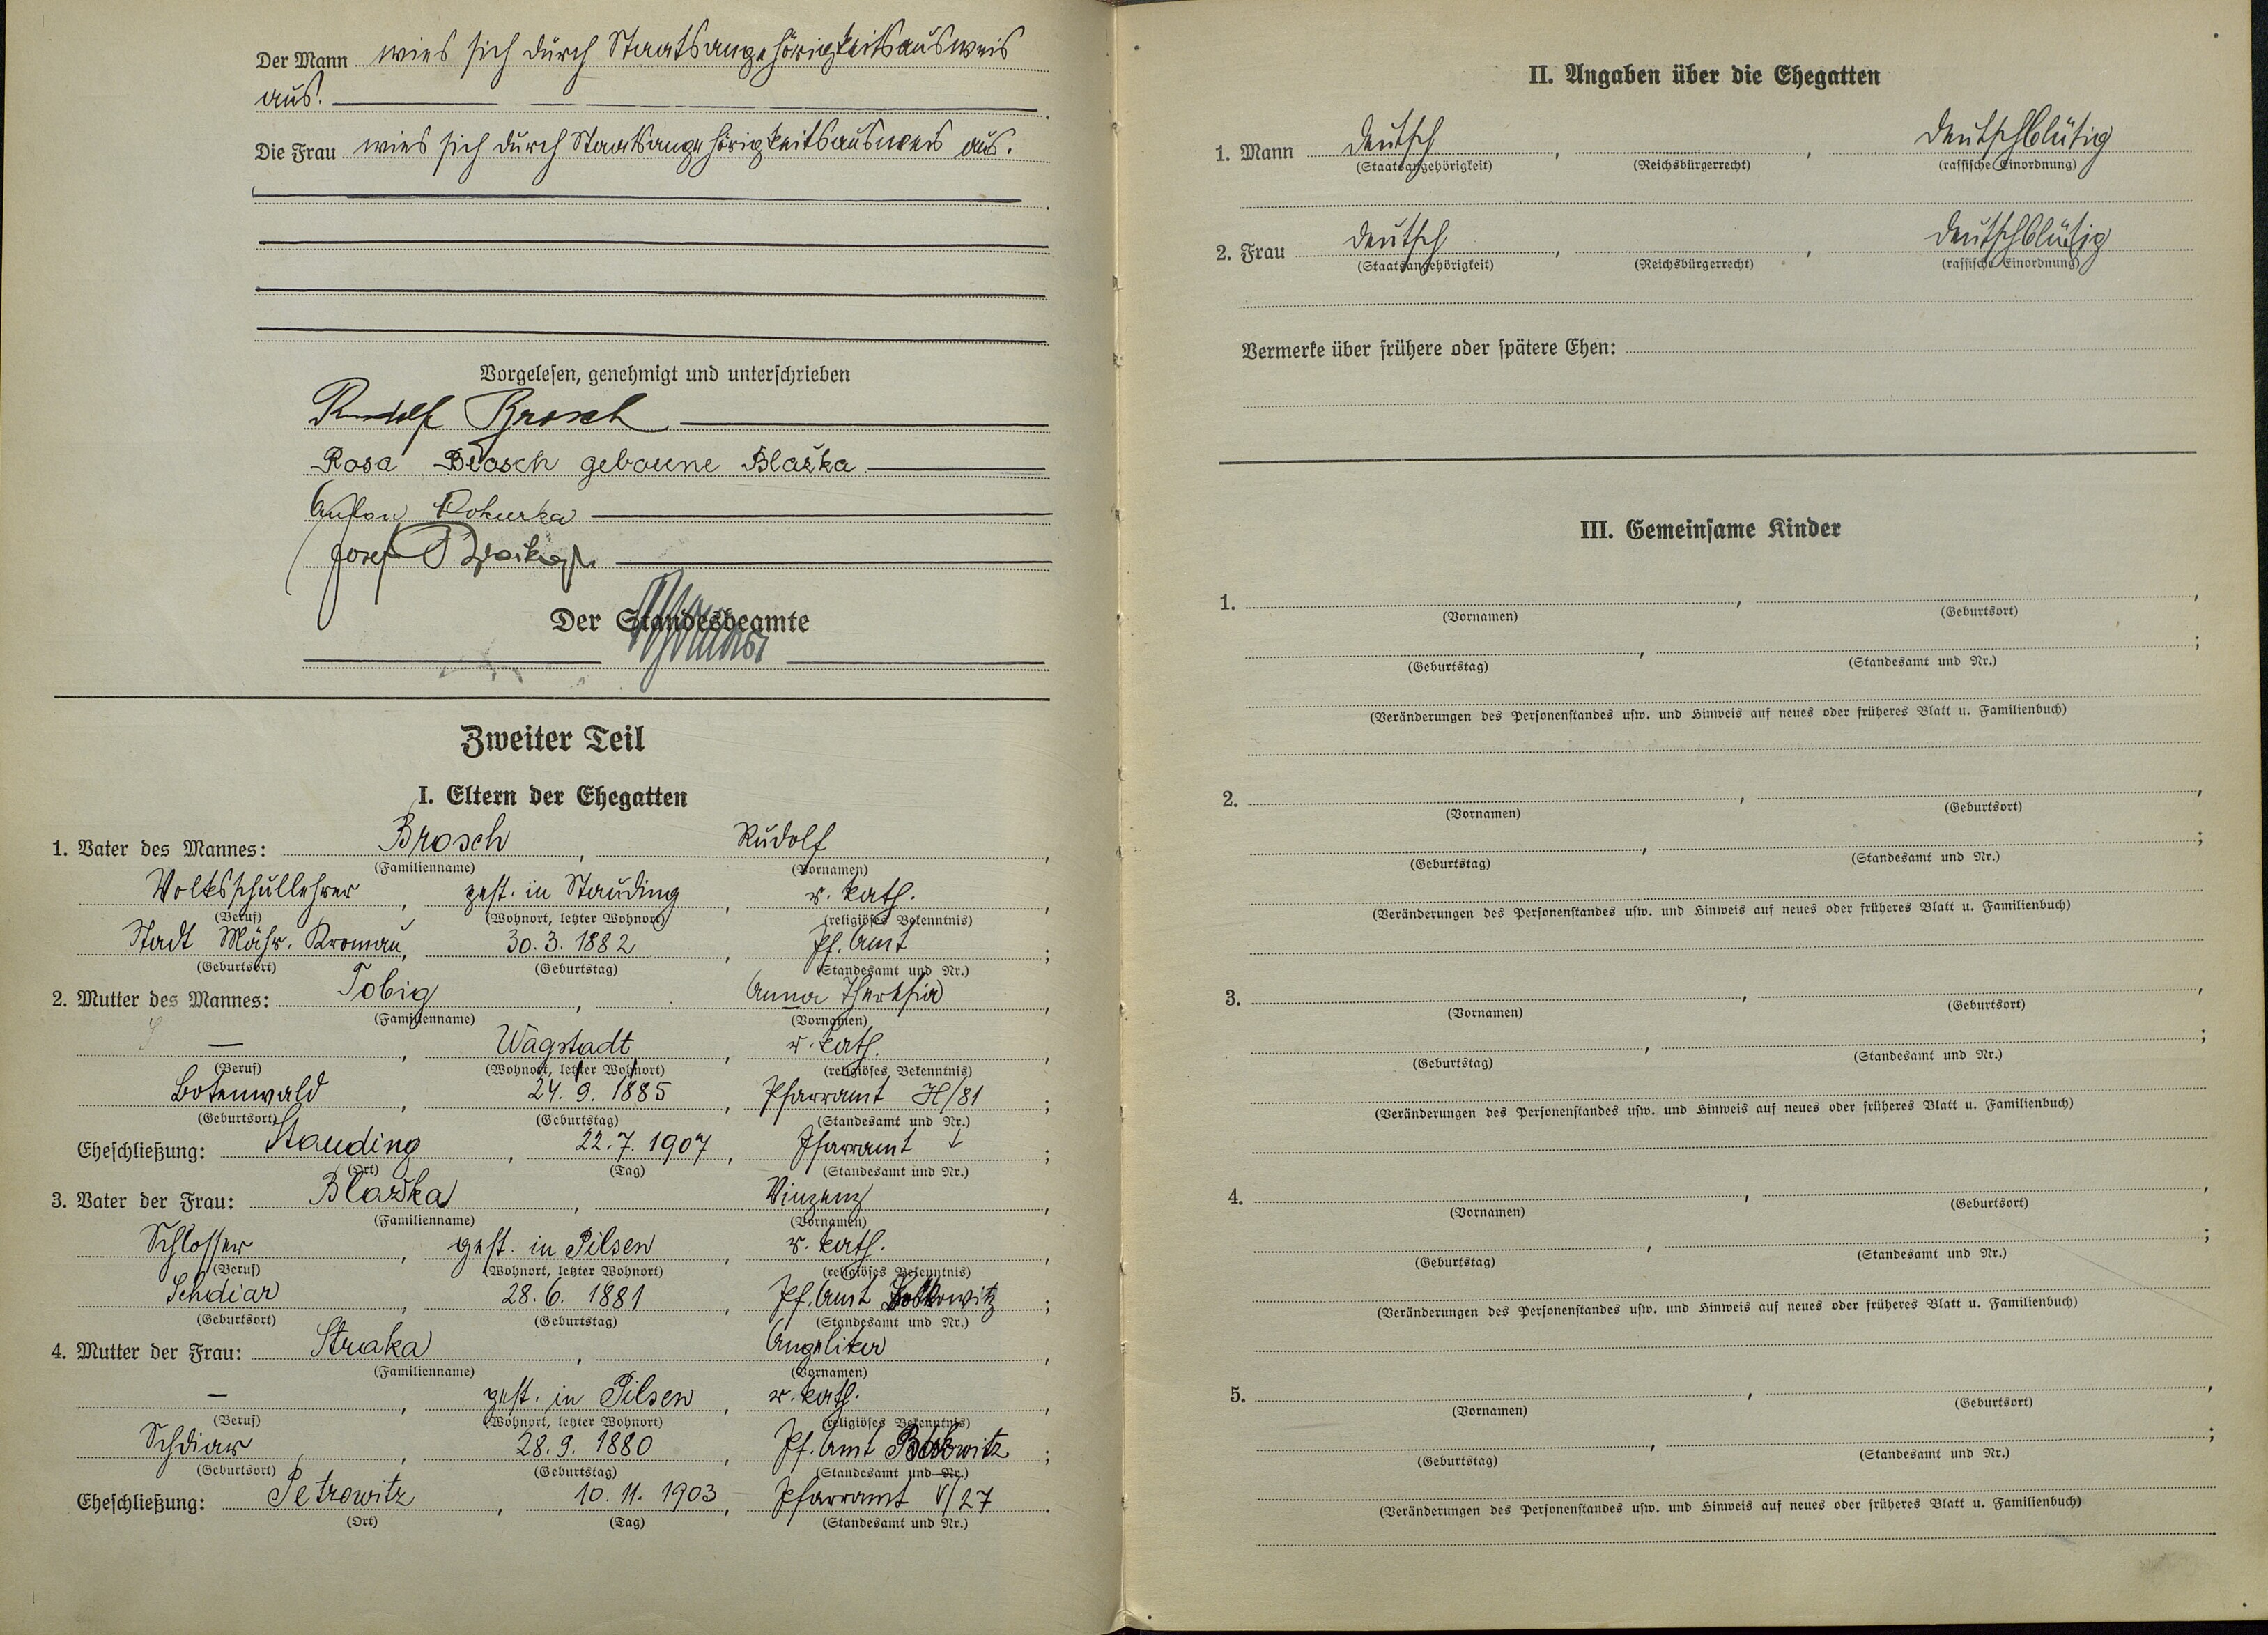 Der Mann wies sich durch Staatsangehörigkeitsausweis
aus.
Die Frau wies sich durch Staatsangehörigkeitsausweis aus.
Vorgelesen, genehmigt und unterschrieben
Rudolf Brosch
Rosa Brosch geborene Blažka
Anton
Josef
Der Standesbeamte
Zweiter Teil
I. Eltern der Ehegatten
1. Vater des Mannes: Brosch, Rudolf,
(Familienname) (Vornamen)
Volksschullehrer, gest. in Stauding, r. kath.,
(Beruf) (Wohnort, letzter Wohnort) (religiöses Bekenntnis)
Stadt Mähr. Kromau, 30.3.1882, Pf. Amt;
(Geburtsort) (Geburtstag) (Standesamt und Nr.)
2. Mutter des Mannes: Tobig, Anna Theresia,
(Familienname) (Vornamen)
—, Wagstadt, r. kath.,
(Beruf) (Wohnort, letzter Wohnort) (religiöses Bekenntnis)
Botenwald, 24.9.1885, Pfarramt H/81;
(Geburtsort) (Geburtstag) (Standesamt und Nr.)
Eheschließung: Stauding, 22.7.1907, Pfarramt;
(Ort) (Tag) (Standesamt und Nr.)
3. Vater der Frau: Blažka, Vinzenz,
(Familienname) (Vornamen)
Schlosser, gest. in Pilsen, r. kath.,
(Beruf) (Wohnort, letzter Wohnort) (religiöses Bekenntnis)
Schdiar, 28.6.1881, Pf. Amt;
(Geburtsort) (Geburtstag) (Standesamt und Nr.)
4. Mutter der Frau: Straka, Angelika,
(Familienname) (Vornamen)
—, gest. in Pilsen, r. kath.,
(Beruf) (Wohnort, letzter Wohnort) (religiöses Bekenntnis)
Schdiar, 28.9.1880, Pf. Amt;
(Geburtsort) (Geburtstag) (Standesamt und Nr.)
Eheschließung: Petrowitz, 10.11.1903, Pfarramt V/27.
(Ort) (Tag) (Standesamt und Nr.)
II. Angaben über die Ehegatten
1. Mann deutsch, , deutschblütig
(Staatsangehörigkeit) (Reichsbürgerrecht) (rassische Einordnung)
2. Frau deutsch, , deutschblütig
(Staatsangehörigkeit) (Reichsbürgerrecht) (rassische Einordnung)
Vermerke über frühere oder spätere Ehen:
III. Gemeinsame Kinder
1. , ,
(Vornamen) (Geburtsort)
, ;
(Geburtstag) (Standesamt und Nr.)
(Veränderungen des Personenstandes usw. und Hinweis auf neues oder früheres Blatt u. Familienbuch)
2. , ,
(Vornamen) (Geburtsort)
, ;
(Geburtstag) (Standesamt und Nr.)
(Veränderungen des Personenstandes usw. und Hinweis auf neues oder früheres Blatt u. Familienbuch)
3. , ,
(Vornamen) (Geburtsort)
, ;
(Geburtstag) (Standesamt und Nr.)
(Veränderungen des Personenstandes usw. und Hinweis auf neues oder früheres Blatt u. Familienbuch)
4. , ,
(Vornamen) (Geburtsort)
, ;
(Geburtstag) (Standesamt und Nr.)
(Veränderungen des Personenstandes usw. und Hinweis auf neues oder früheres Blatt u. Familienbuch)
5. , ,
(Vornamen) (Geburtsort)
, ;
(Geburtstag) (Standesamt und Nr.)
(Veränderungen des Personenstandes usw. und Hinweis auf neues oder früheres Blatt u. Familienbuch)